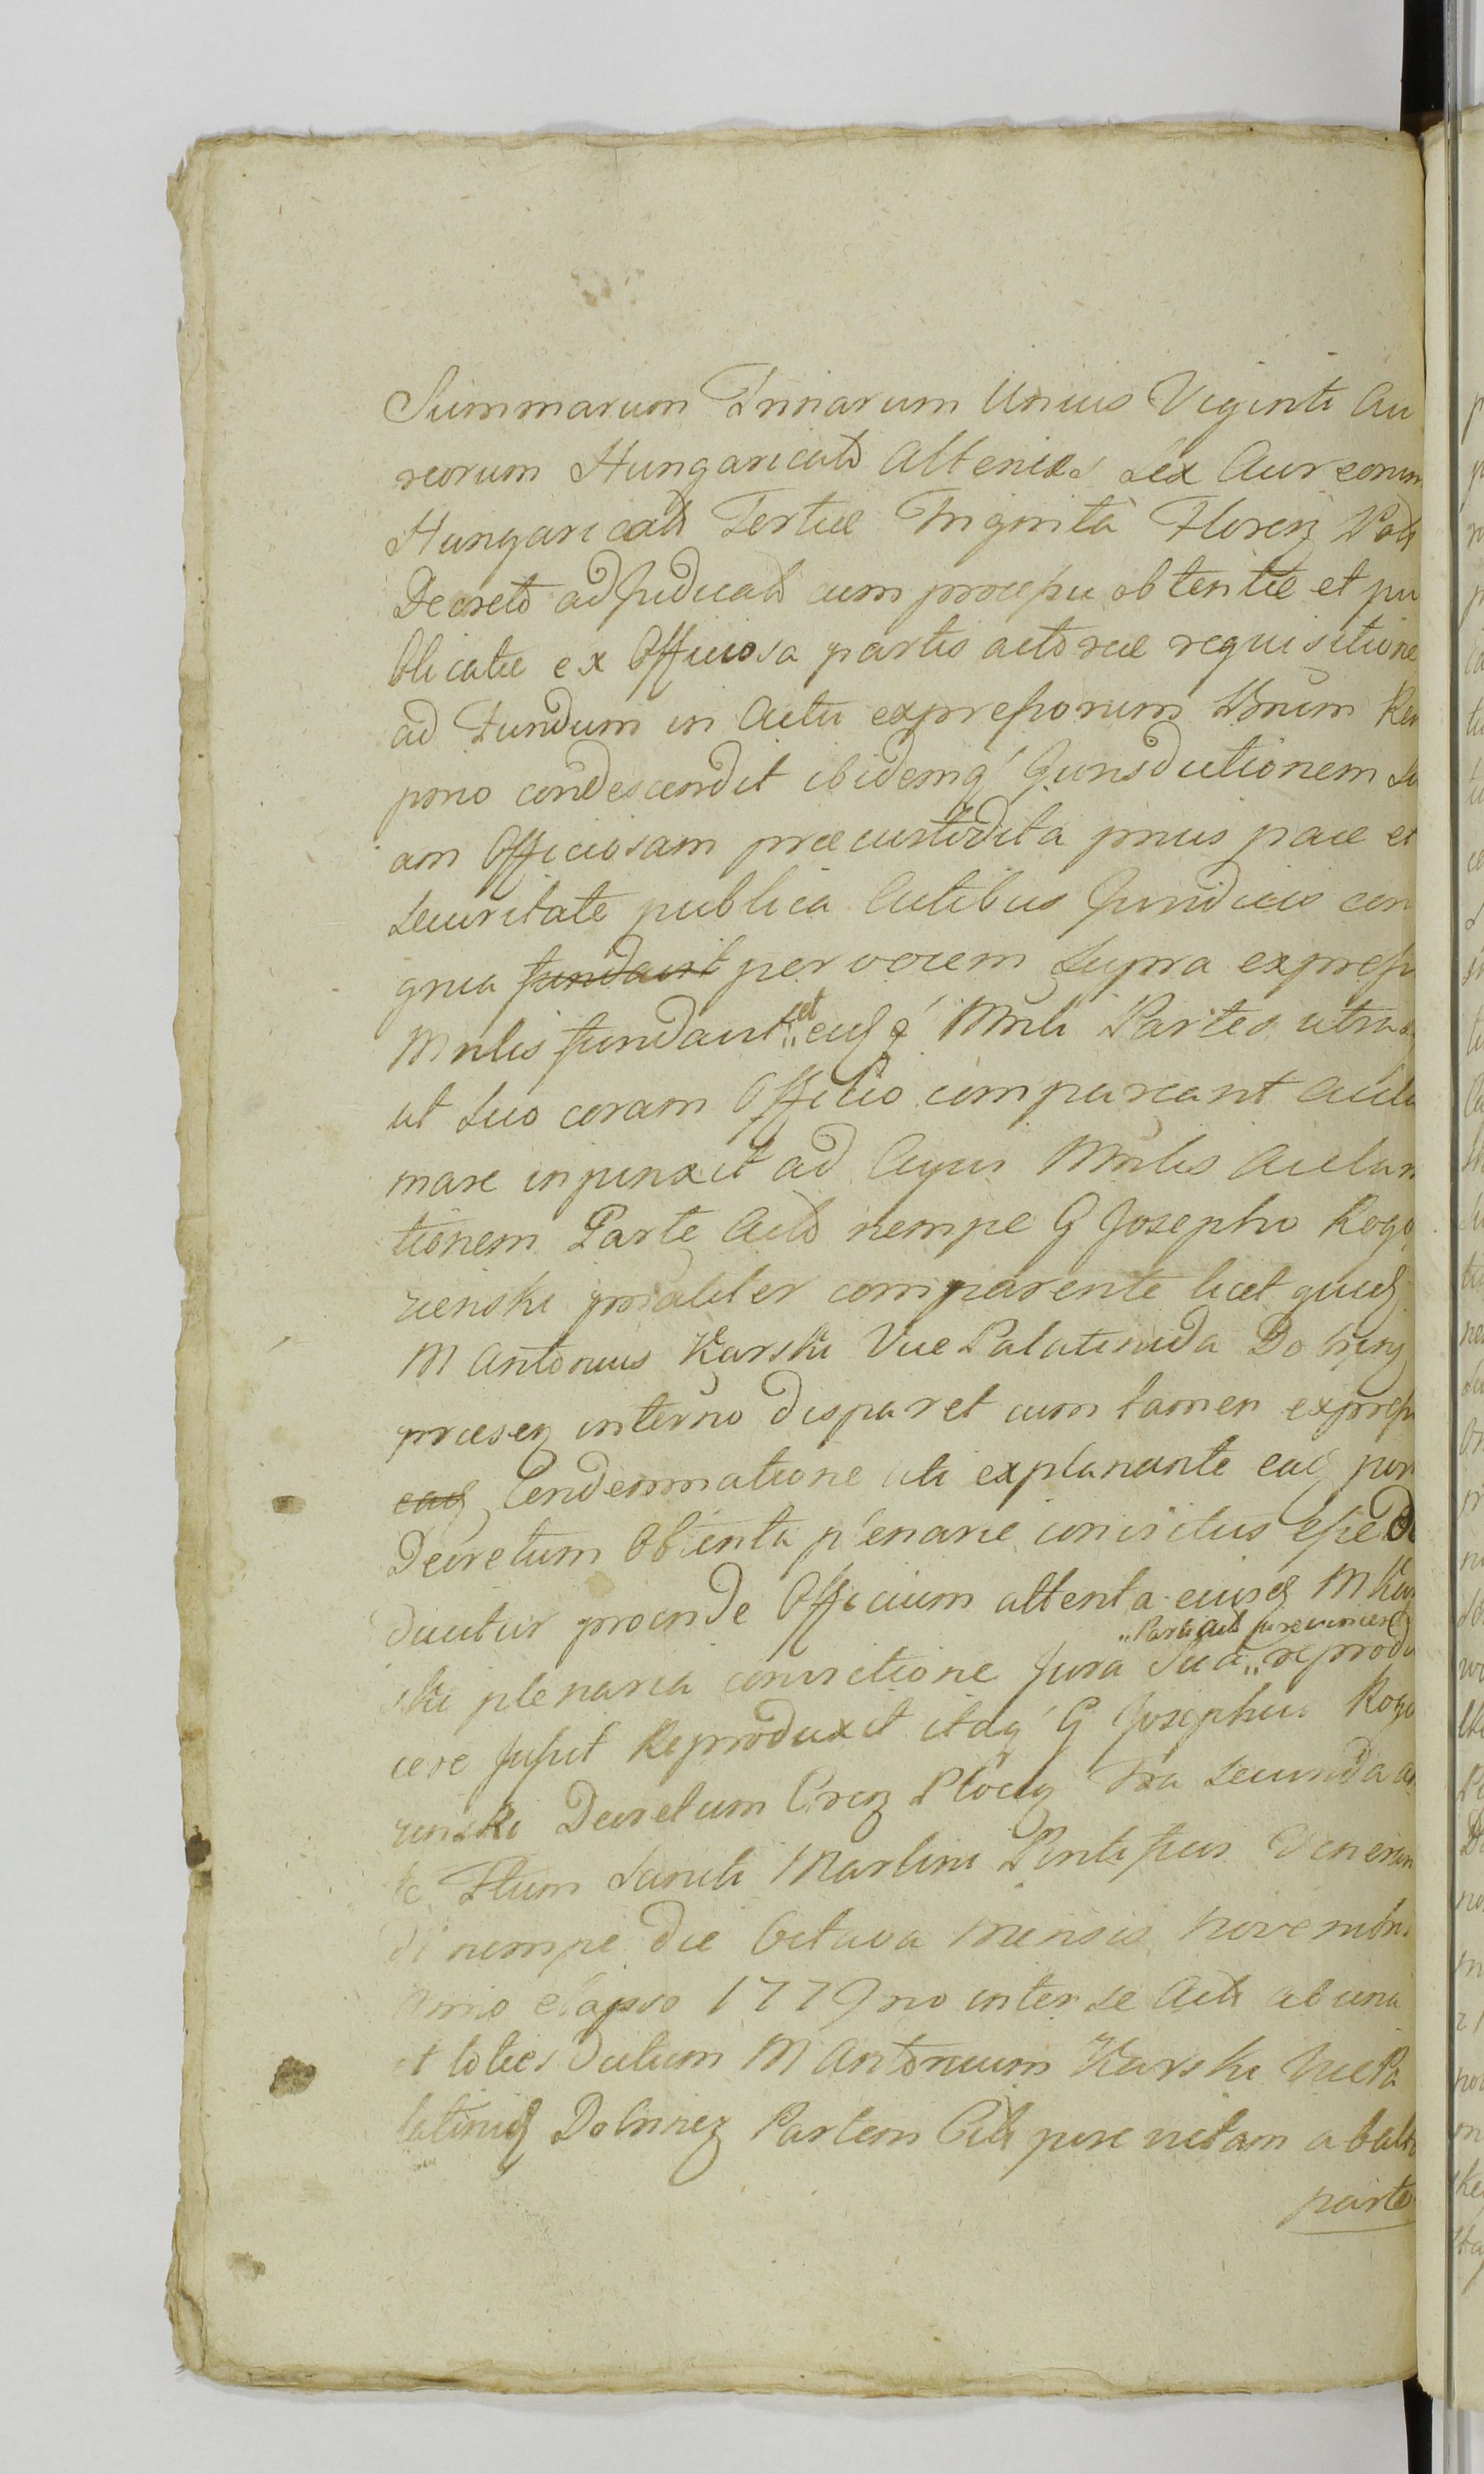 Summarum Trinarum Unius Viginti Au
reorum Hungaricalo Alterius Sex Aureorum
Hungarical Tertiæ Triginta Floreņ Pol
Decreto adJudical cum processu obtentæ et pu
blicatæ ex Officiosa partis actoreæ requisitione
ad Fundum in Actu expressorum Bnum
pino condescendit ibidemq Jurisdictionem Su
am Officiosam præcustodita prius pace et
securitate publica Actibus Juridicis con
grua fundavit per vocem Supra expressi
Mnlis fundavit et Mnli Partes utrasq
ut Suo coram Officio compareant Accla
mare injunxit ad Cujus Mnlis Acclama
tionem Parte Act nempe G Josepho Rogo
zienski prsaliter comparente licet quid
M Antonius Karski Vice Palatinida Dobrzyn
præsen interno disparet cum tamen expressa
ead Condemnatione uti explanante ead per
Decretum Obtenta plenarie convictus esse De
ducitur proinde Officium attenta eiusd M Kar
„Parti Act
ski plenaria convictione Jura Sua „ reprodu
cere Jussit Reproduxit itaq G Josephus Rogo
zinski Decretum Plocen Fra Secunda an
te Ftum Sancti Martini Pontificis Veneran
di nempe die Octava Mensis Novembris
Anno elapso 1779no inter se Act ab una
et toties dictum M Antonium Karski VicePa
latinid Dobrinen Partem Cit ab altera
parte